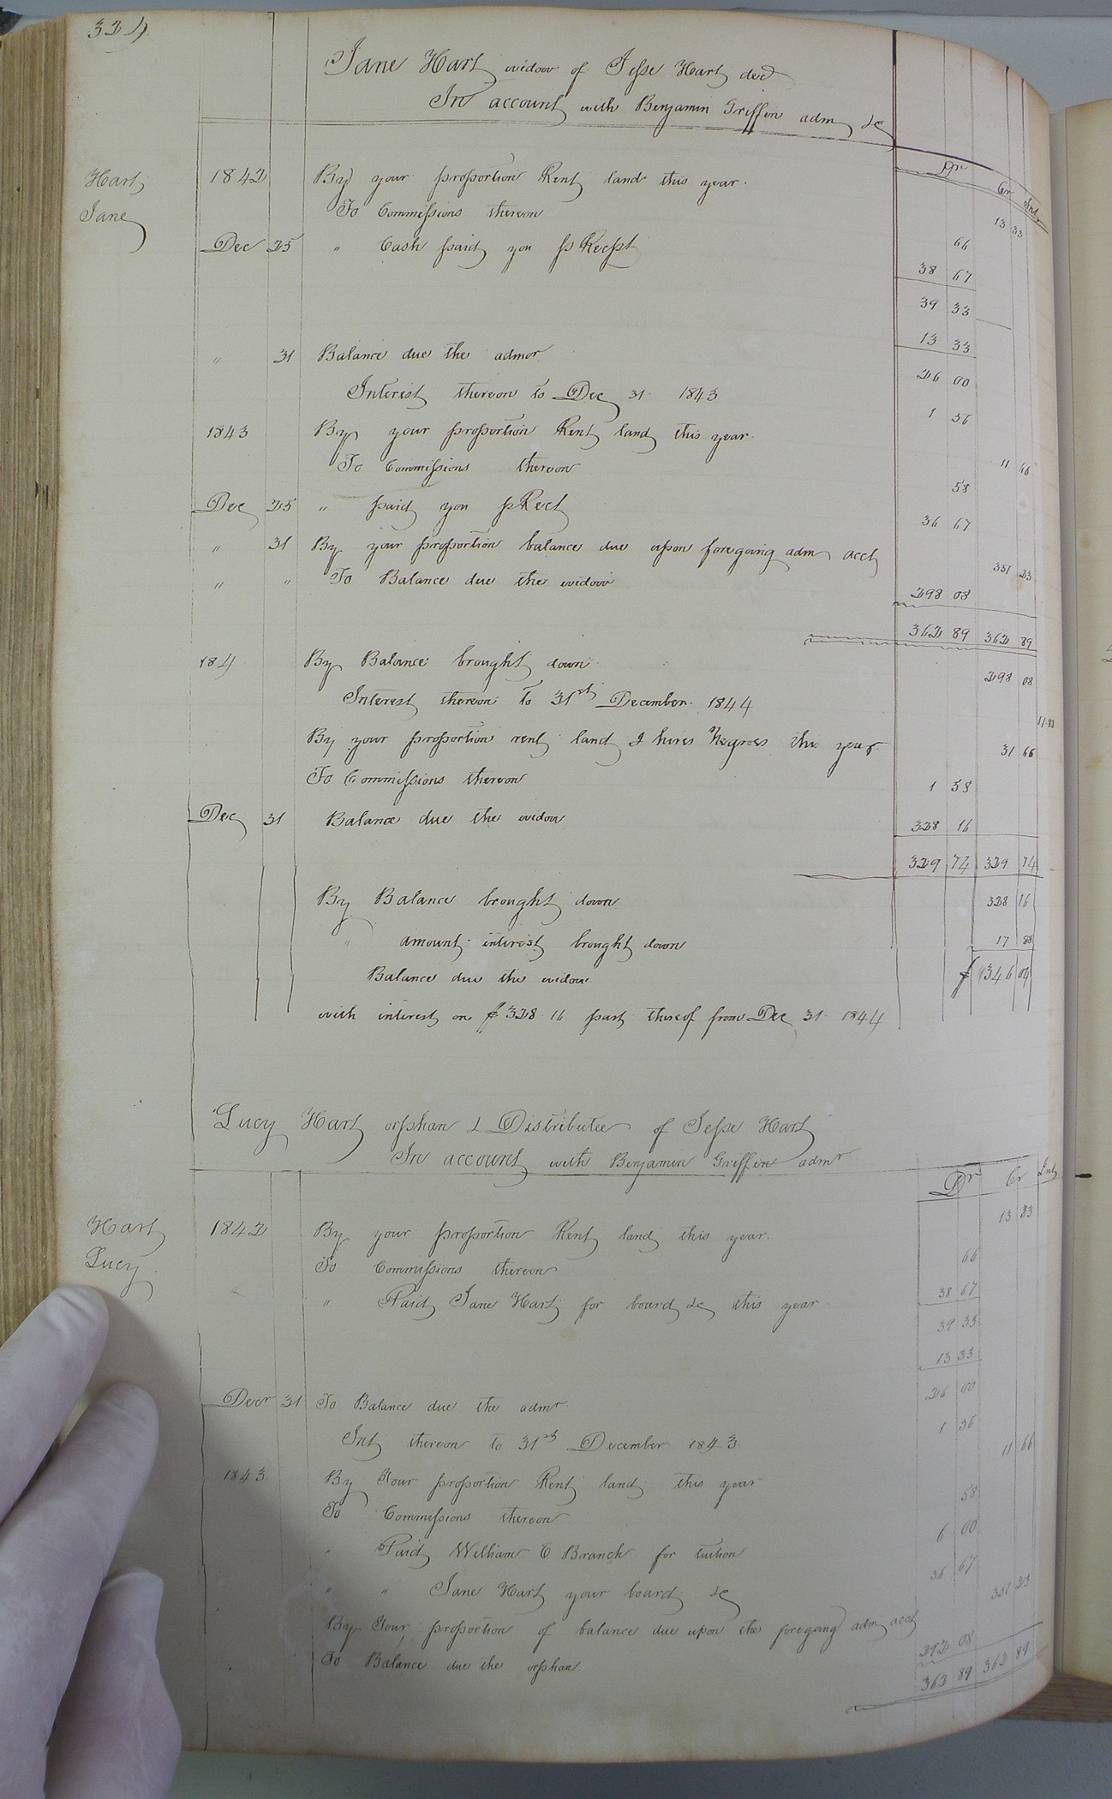 324
Jane Hart widow of Jesse Hart decd
In account with Benjamin Griffin adm &c
Dr Cr Int
Hart Jane
1842 By your proportion Rent land this year. 13 33
To Commissions thereon 66
Dec 25 " Cash paid you p Recpt 38 67
39 33
13 33
" 31 Balance due the admr 26 00
Interest thereon to Dec 31 1843 1 56
1843 By your proportion Rent land this year. 11 66
To Commissions thereon 58
Dec 25 " paid you p Rect 36 67
" 31 By your proportion balance due upon foregoing adm acct 351 23
" " To Balance due the widow 298 08
362 89 362 89
184 By Balance brought down 298 08
Interest thereon to 31st December 1844 17 88
By your proportion rent land & hires Negroes this year 31 66
To Commissions thereon 1 58
Dec 31 Balance due the widow 328 16
329 74 329 74
By Balance brought down 328 16
" amount interest brought down 17 88
Balance due the widow $ 346 04
with interest on $ 328 16 part thereof from Dec 31 1844
Lucy Hart orphan & Distributee of Jesse Hart
In account with Benjamin Griffin admr
Dr Cr Int
Hart Lucy
1842 By your proportion Rent land this year. 13 33
To Commissions thereon 66
" Paid Jane Hart for board &c this year 38 67
39 33
13 33
Decr 31 To Balance due the admr 26 00
Int thereon to 31st December 1843 1 56
1843 By Your proportion Rent land this year 11 66
To Commissions thereon 58
" Paid William C Branch for tuition 6 00
" " Jane Hart your board &c 36 67
By Your proportion of balance due upon the foregoing adm acct 351 23
To Balance due the orphan. 292 08
362 89 362 89